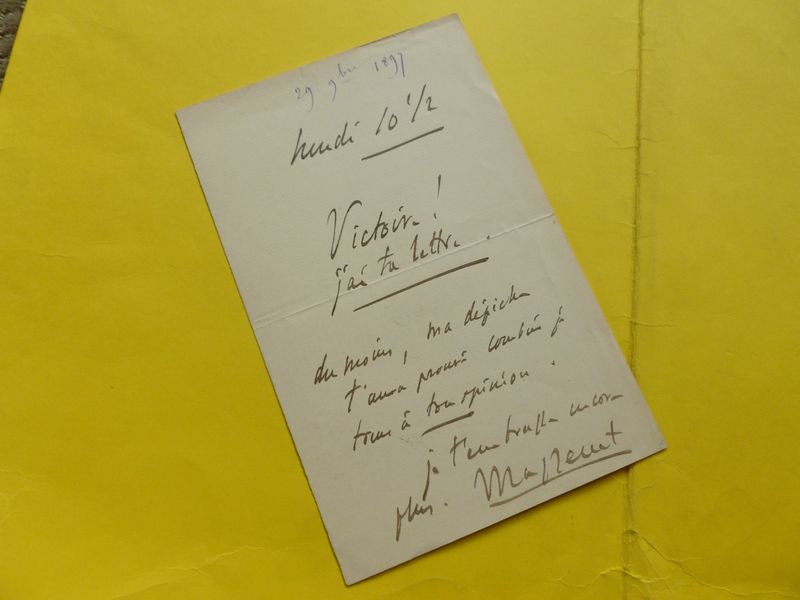 29 9bre 1897
lundi 10 1/2
Victoire!
j'ai ta lettre.
du moins, ma dépêche
t'aura prouvé combien je
tiens à ton opinion.
je t'embrasse encore
plus. Massenet